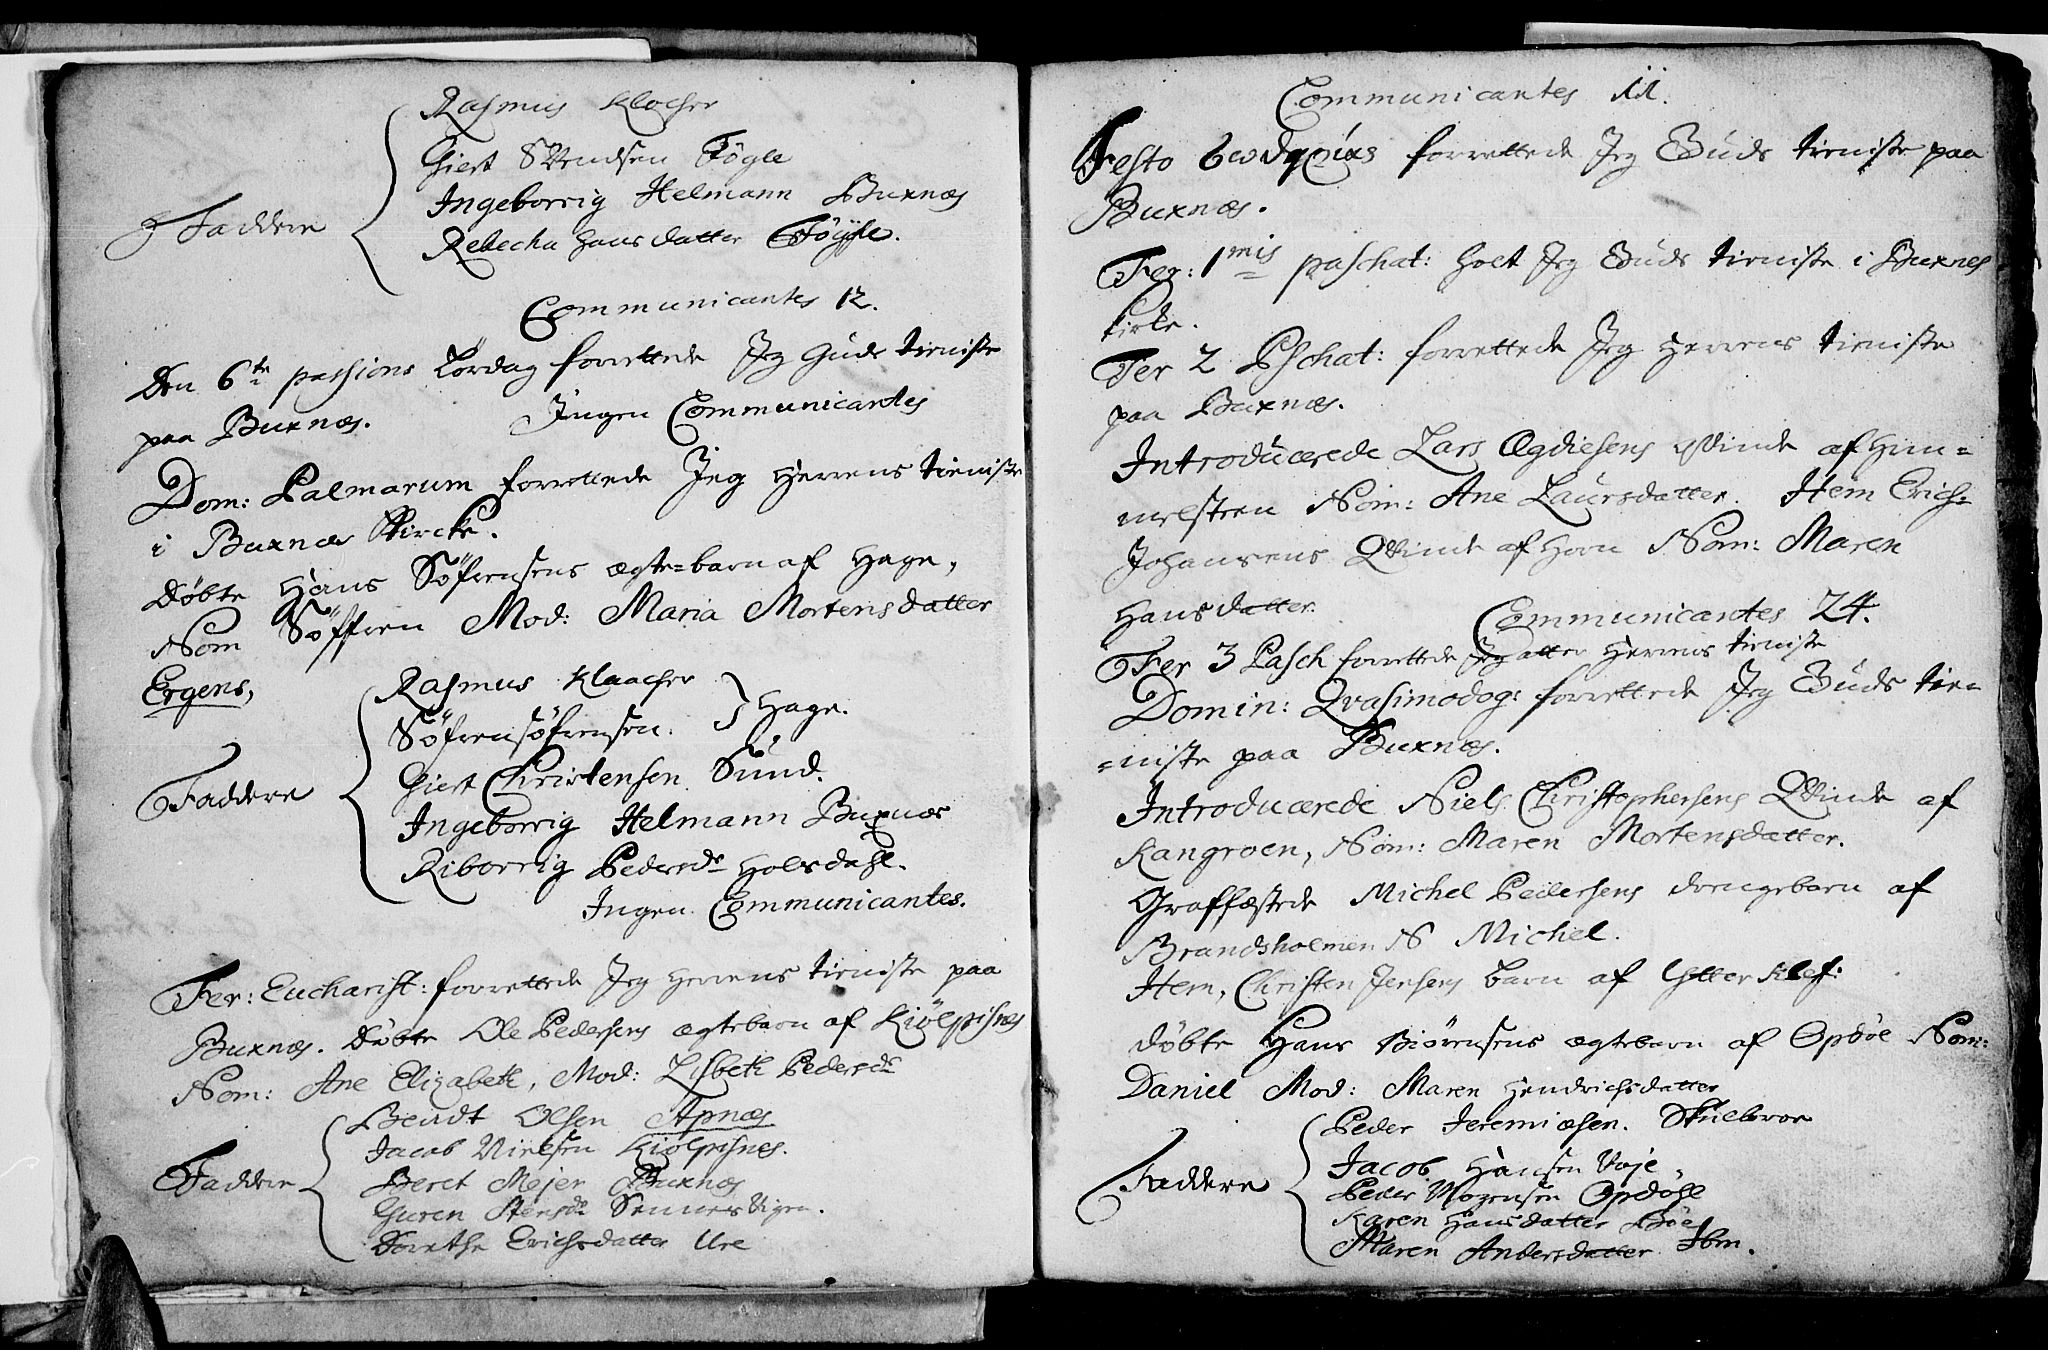 Rasmus Klocher
Giert Svendsen Føgle
Ingeborrig Helmann Buxnæs
Faddere
Rebecha Hansdatter Føyle.
Communicantes 12.
Den 6te passions Lørdag forrettede Jeg Guds tieniste
paa Buxnæs. Ingen Communicantes
Dom: Palmarum forrettede Jeg Herrens tieniste
i Buxnæs Kircke.
Døbte Hans Søfrensens ægte=barn af Hage,
Nom Søffren Mod: Maria Mortensdatter
Ergens,
Rasmus Klaacher
Søfrensøfrensen. Hage.
Giert Christensen Sund.
Faddere
Ingeborrig Helmann Buxnæs
Riborrig Pedersdr Holsdahl.
Ingen Communicantes.
Fer: Eucharist: forrettede Jeg Herrens tieniste paa
Buxnæs. Døbte Ole Pedersens ægtebarn af Kiølpisnes
Nom: Ane Elizabeth, Mod: Lisbeth Pedersdr
Bendt Olsen Apnæs
Jacob Nielsen Kiølpisnes.
Faddere
Beret Mejer Buxnæs
Guren Stensdr Sennesvigen.
Dorethe Erichsdatter Ure
Communicantes 11.
Festo forrettede Jeg Guds tieniste paa
Buxnæs.
Fer: 1mis paschat: holt Jeg Guds tieniste i Buxnes
kirke.
Fer 2 Pschat: forrettede Jeg Herrens tieniste
paa Buxnæs.
Introducerede Lars Ægdiesens Qvinde af Him=
melsteen Nom: Ane Laursdatter. Item Erich=
Johansens Qvinde af Horn Nom: Maren
Hansdatter.
Communicantes 24.
Fer 3 Pasch forrettede Jeg atter Herrens tieniste
Domin: Qvasimodog: forrettede Jeg Guds tie=
=niste paa Buxnæs.
Introducerede Niels Christophersens Qvinde af
Kangroen, Nom: Maren Mortensdatter.
Graffæstede Michel Pedersens drengebarn af
Brandsholmen N Michel.
Item, Christen Jensens barn af Ytter Klef:
Døbte Hans Biørensens ægtebarn af Opdøe Nom:
Daniel Mod: Maren Hendrichsdatter
Peder Jeremiæsen. Skulbroe
Jacob Hansen Voje.
Faddere
Peder Mogensen Opdøhl
Karen Hansdatter Bøe
Maren Andersdatter Ibm.